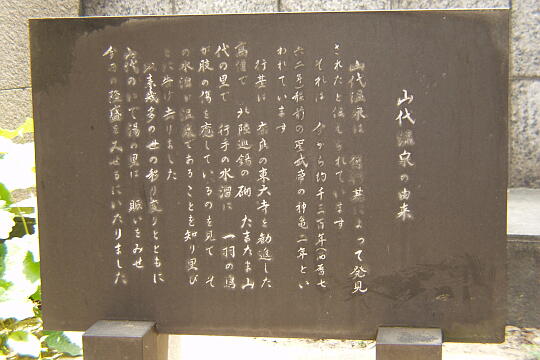 山代温泉の由来
山代温泉は 僧行基によって発見
されたと伝えられています
それは 今から約千三百年(西暦七
二五年)以前の聖武帝の神亀二年とい
われています
行基は 奈良の東大寺を勧進した
高僧で 北陸巡錫の砌 たまたま山
代の里で 行手の水溜に 一羽の烏
が股の傷を癒しているのを見て そ
の水溜が温泉であることを知り里び
とに告げ去りました
以来幾多の世の移り変りとともに
山代のいで湯の里は 賑をみせ
今日の隆盛をみせるにいたりました